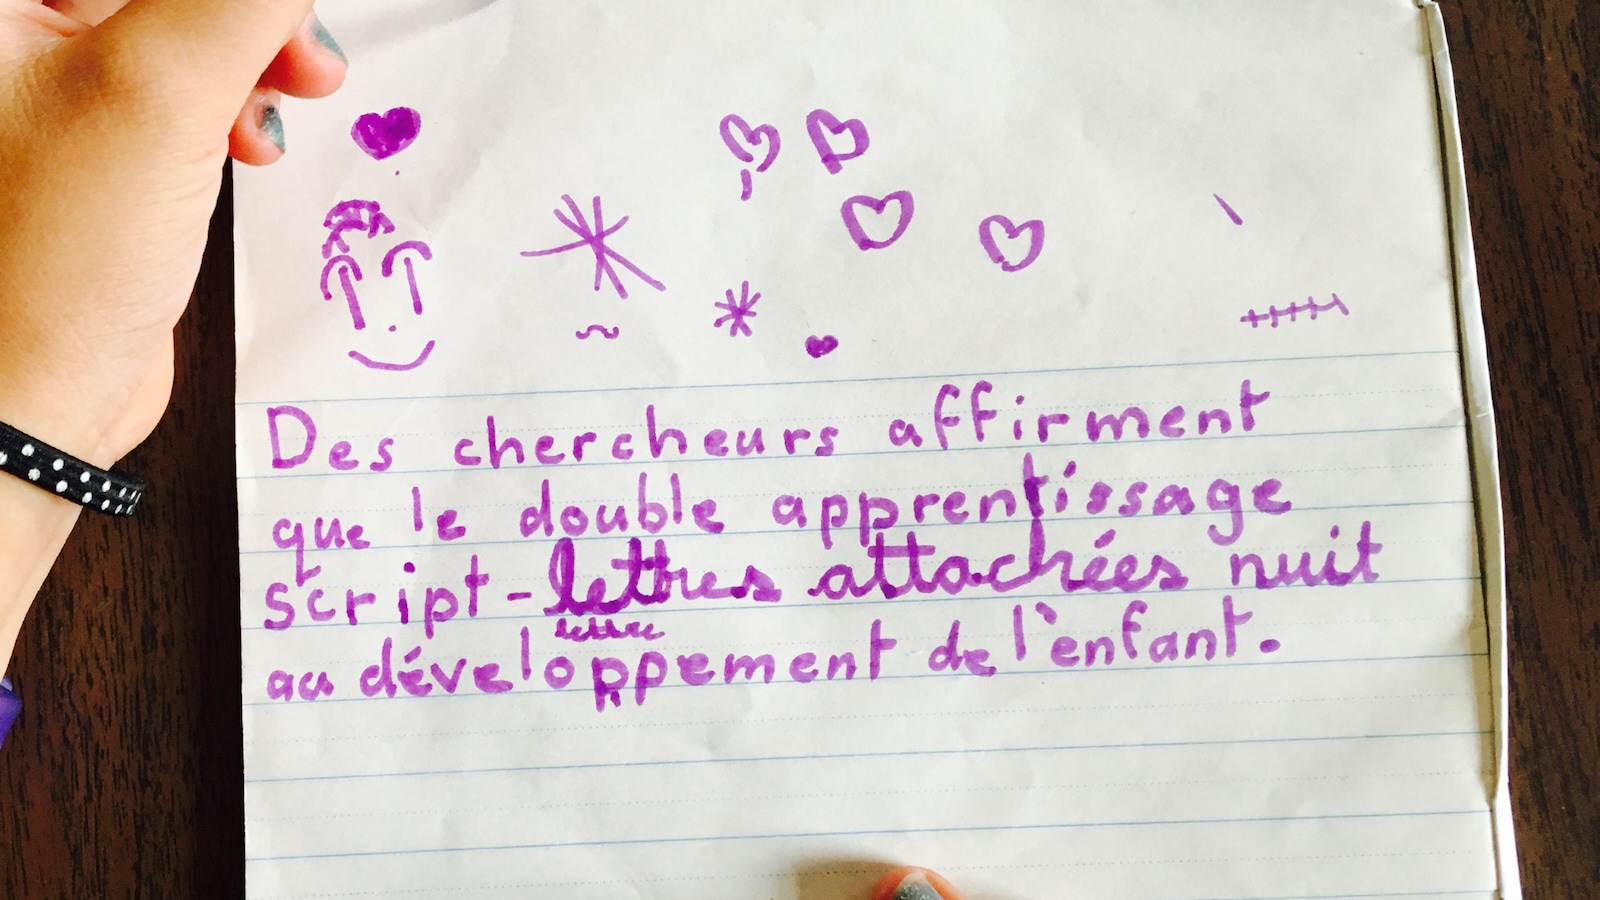 Des chercheurs affirment
que le double apprentissage
script-lettres attachées nuit
lettre
au développement de l'enfant.